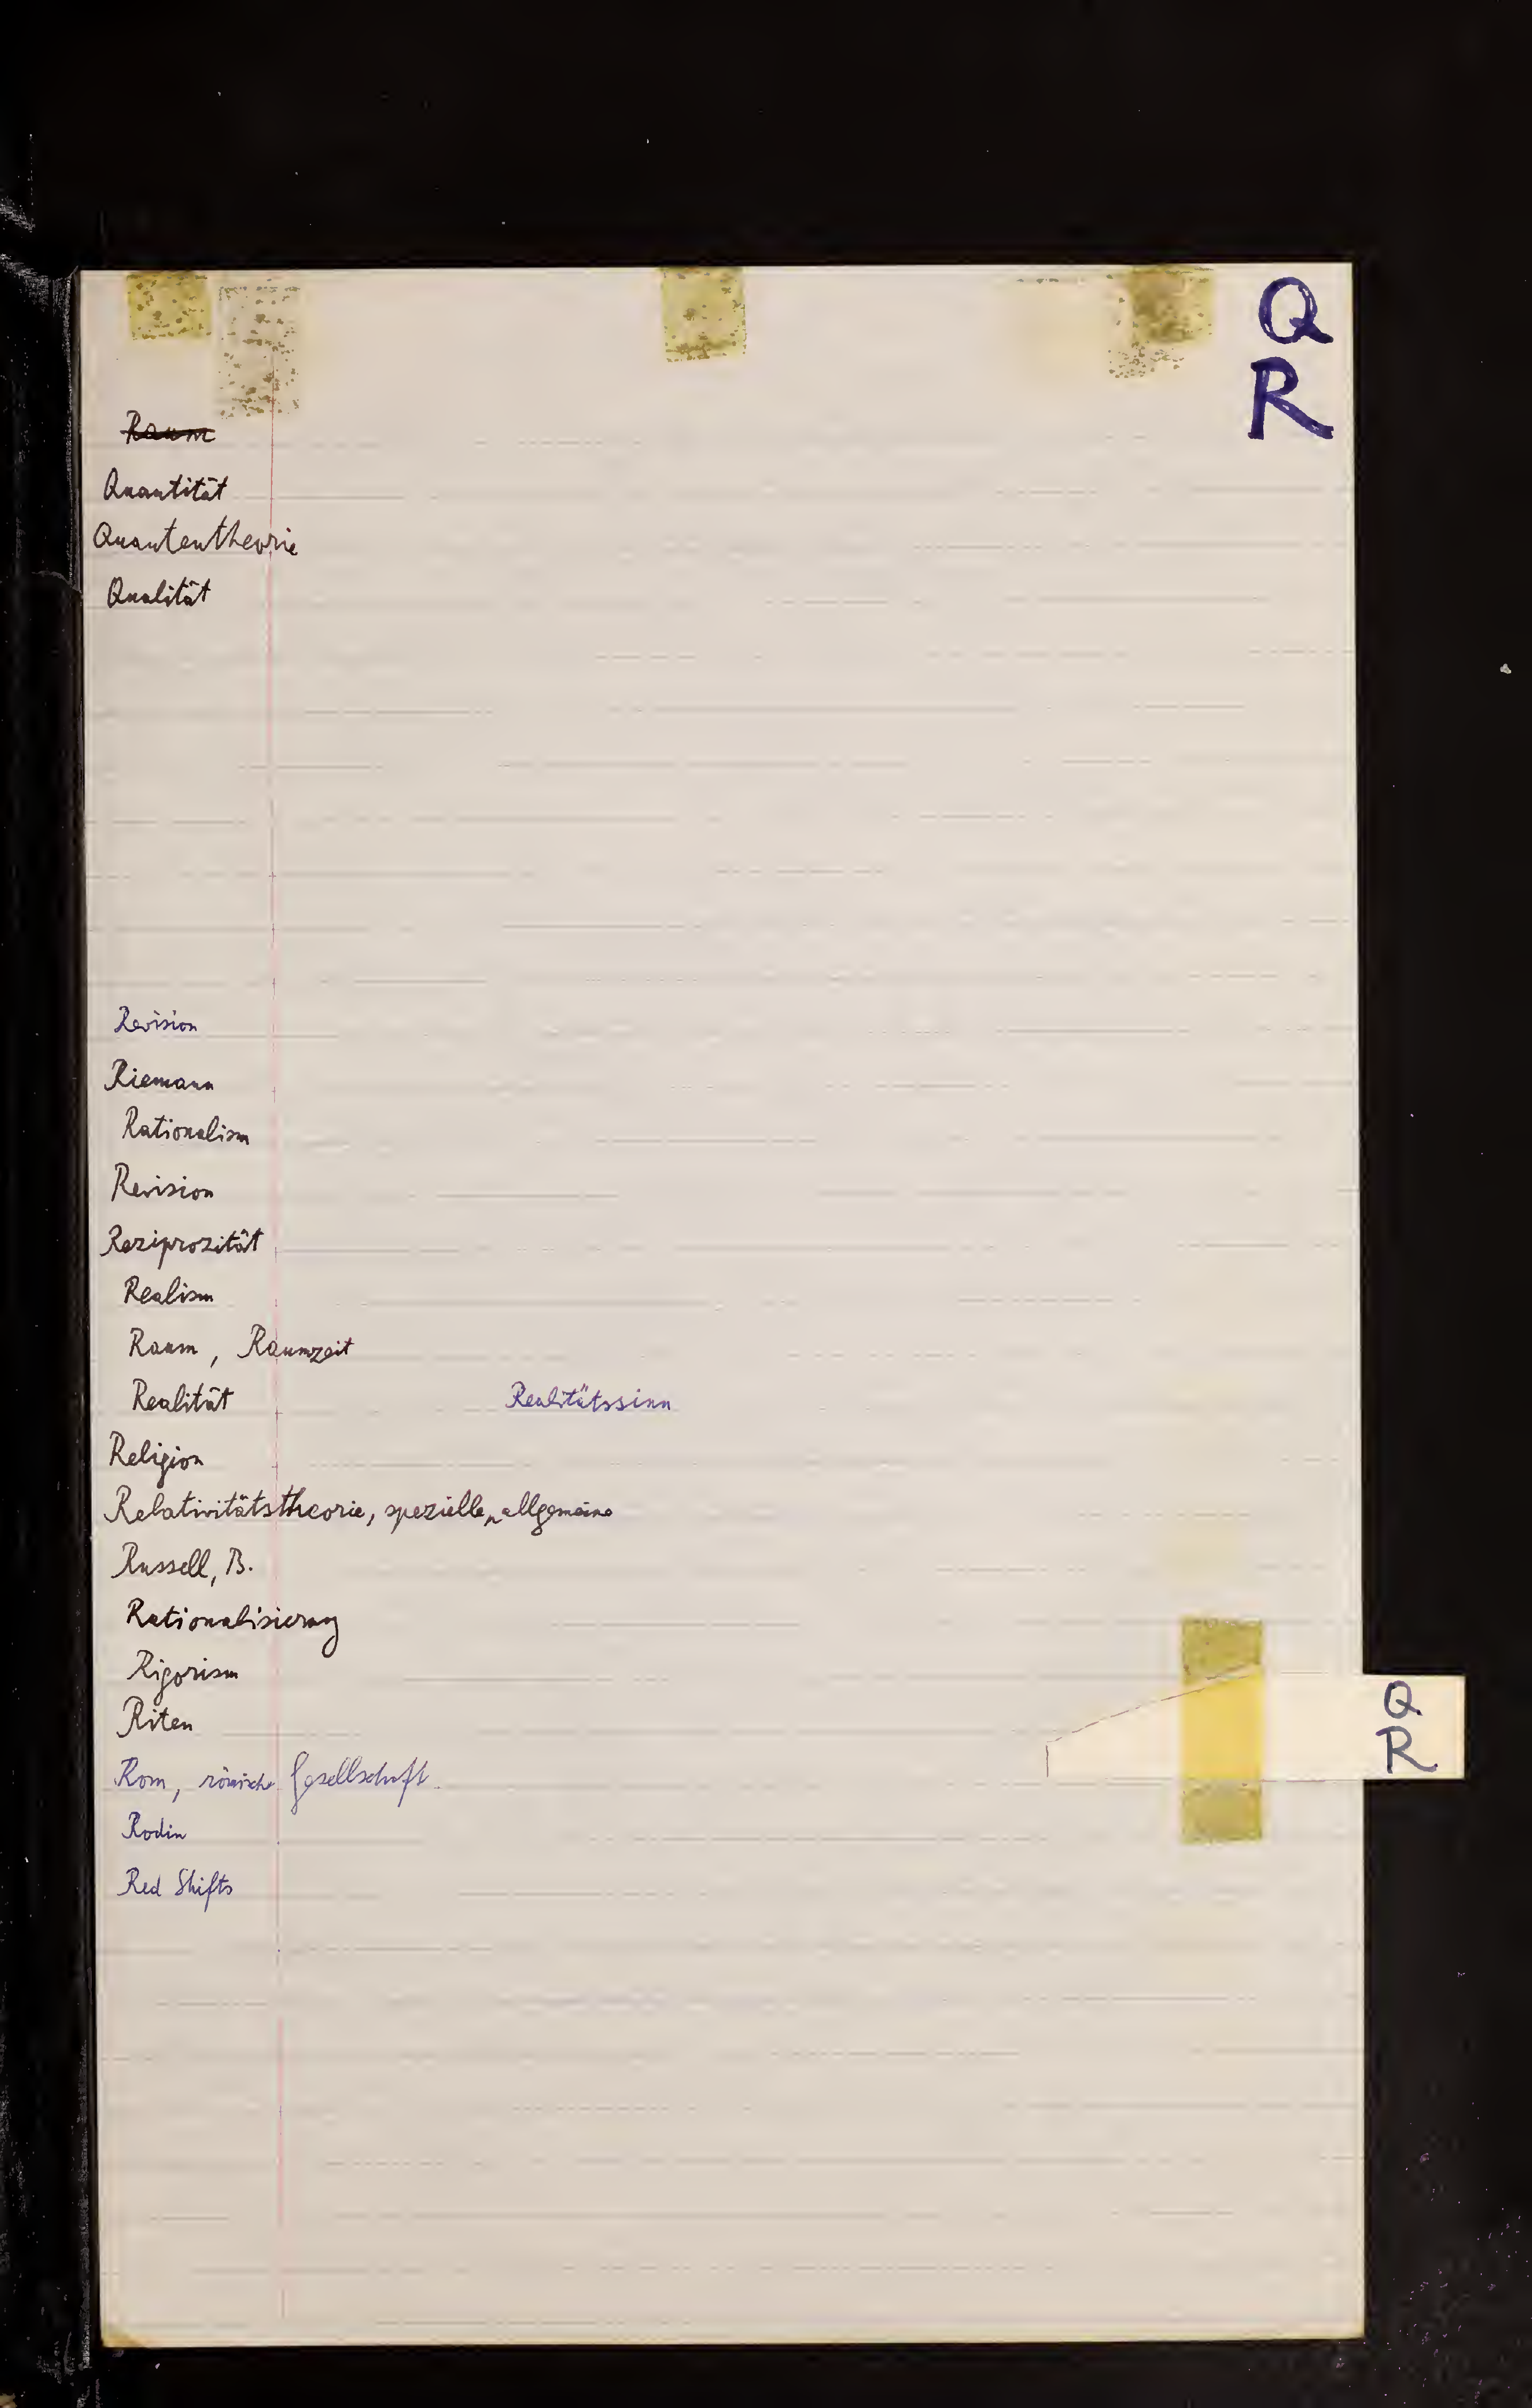 Q
R
Raum
Quantität
Quantentheorie
Qualität
Revision
Riemann
Rationalism
Revision
Reziprozität
Realism
Raum, Raumzeit
Realität Realitätssinn
Religion
Relativitätstheorie, spezielle, allgemeine
Russell, B.
Rationalisierung
Rigorism
Riten
Q
R
Rom, römische Gesellschaft
Rodin
Red Shifts